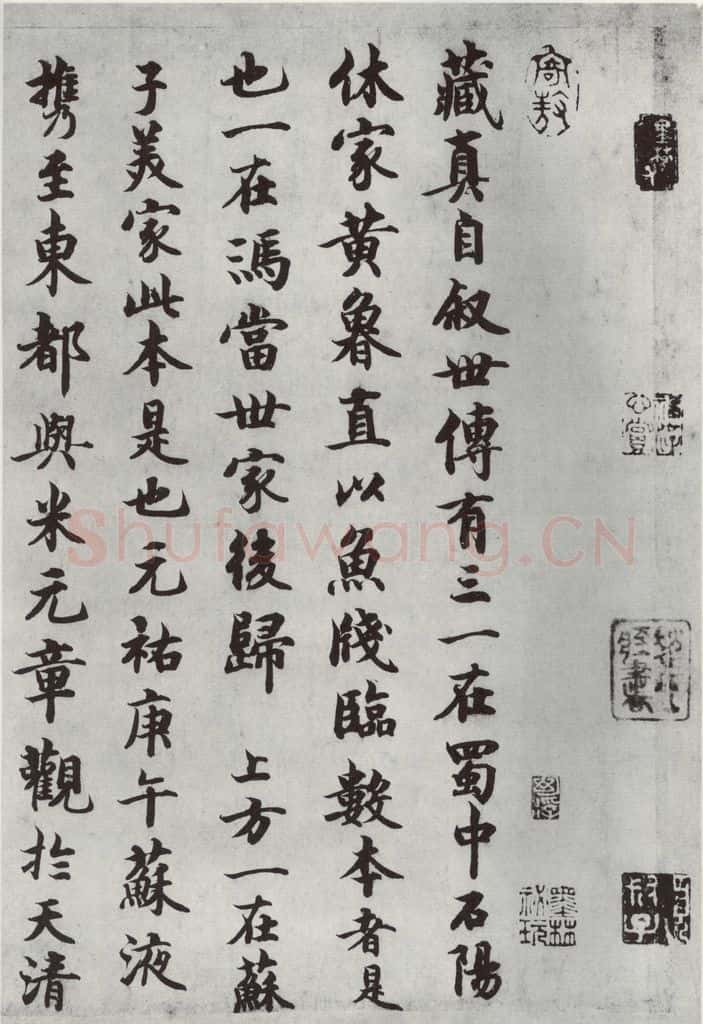 藏真自叙世傳有三一在蜀中石陽
休家黄魯直以魚牋臨數本者是
也一在馮當世家後歸 上方一在蘇
子美家此本是也元祐庚午蘇液
携至東都與米元章觀於天清
Shufawang.CN